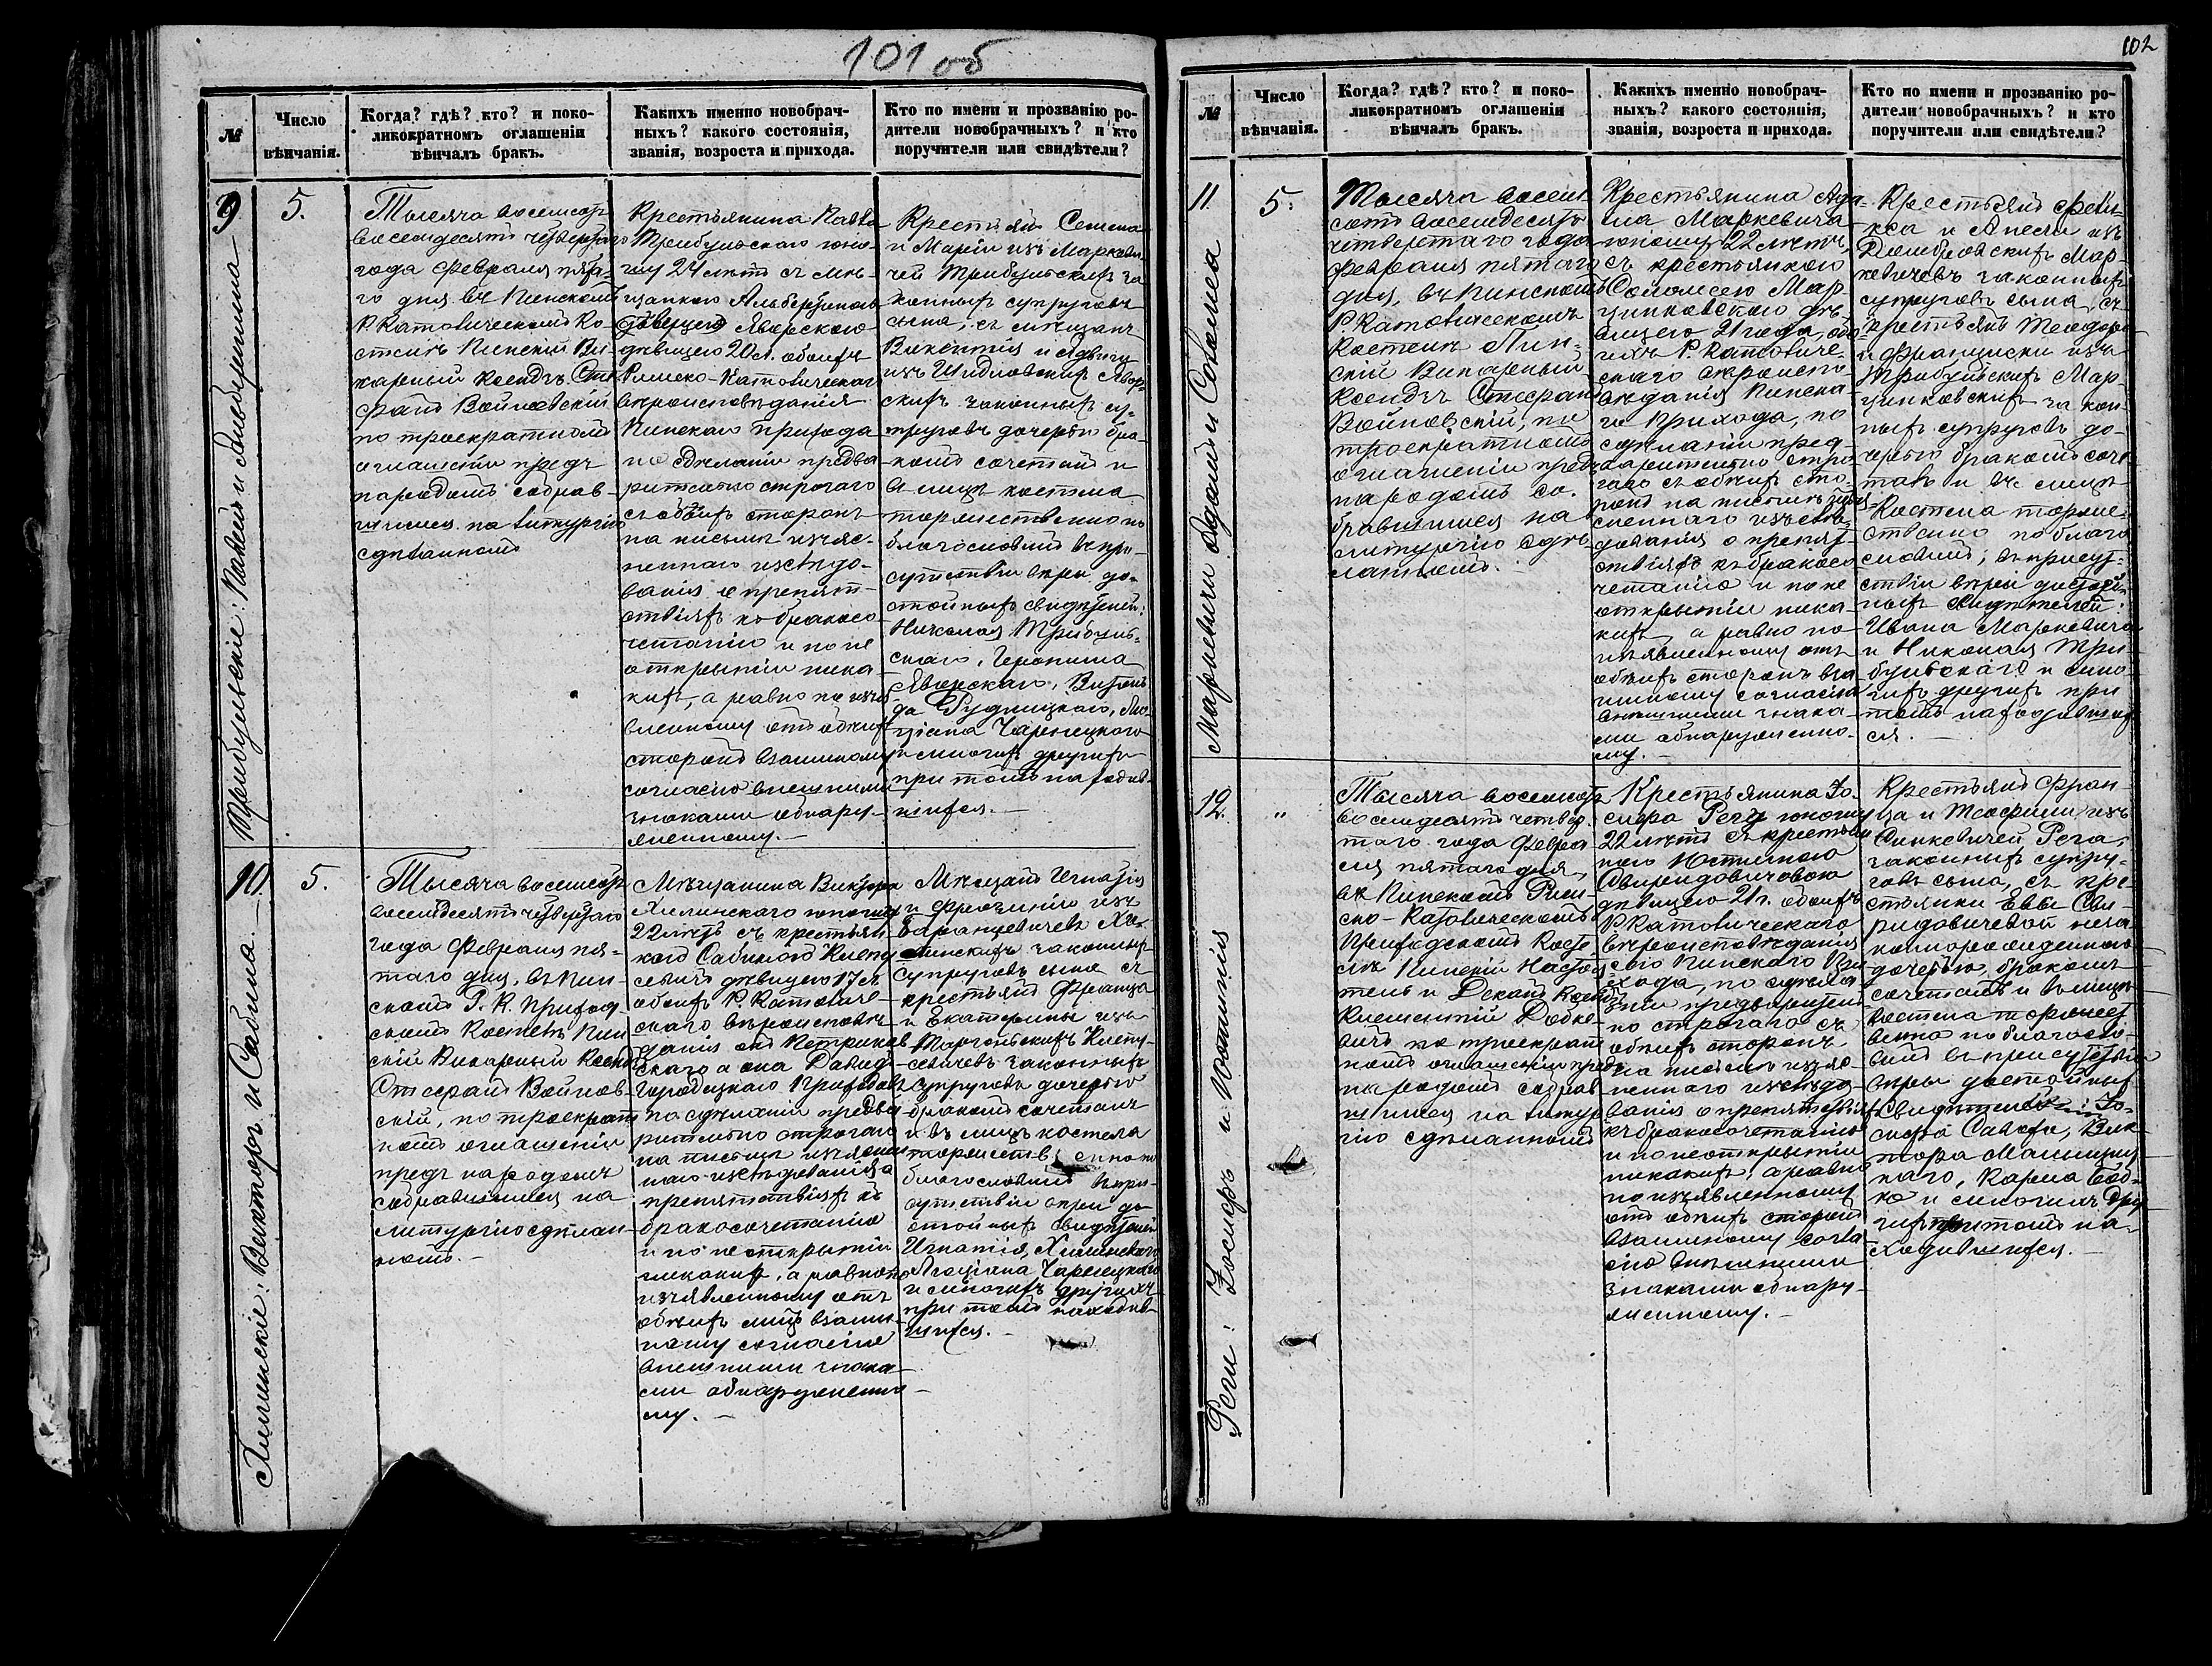 101 об
№
Число
вѣнчанія.
Когда? гдѣ? кто? и поко-
ликократномъ оглашеніи
вѣнчалъ бракъ.
Какихъ именно новобрач-
ныхъ? какого состоянія,
званія, возроста и прихода.
Кто по имени и прозванію ро-
дители новобрачныхъ? и кто
поручители или свидѣтели?
9
Трибульскіе: Павелъ и Альбертина
5.
Тысяча восемсотъ
восемдесятъ четвертаго
года Февраля пята-
го дня въ Пинскомъ
Р. Католическомъ Ко-
стелѣ Пинскій Ви-
карный Ксендзъ Сте-
фанъ Войновскій
по троекратномъ
оглашеніи предъ
народомъ собрав-
шимся на литургію
сдѣланномъ
Крестьянина Павла
Трибульскаго юно-
шу 24 лѣтъ съ мѣ-
щанкою Альбертиною
Яворскою
дѣвицею 20 л. обоихъ
Римско-Католическаго
вѣроисповѣданія
Пинскаго прихода
по сдѣланіи предва
рительно строгаго
съ обѣихъ сторонъ
на письмѣ изъяс-
неннаго изслѣдо-
ванія о препят-
ствіяхъ къ бракосо
четанію и по не
открытіи ника-
кихъ, а равно по изъя
вленному отъ обѣихъ
сторонъ взаимному
согласію внѣшними
знаками обнару-
женному.—
Крестьянъ Семена
и Маріи изъ Маркеви-
чей Трибульскихъ за
конныхъ супруговъ
сына, съ мѣщанъ
Викентія и Ядвиги
изъ Шидловскихъ Явор-
скихъ законныхъ су-
пруговъ дочерью бра-
комъ сочеталъ и
въ лицѣ костела
торжественно по
благословилъ въ при-
сутствіи вѣры до-
стойныхъ свидѣтелей:
Николая Трибуль-
скаго, Іеронима
Яворскаго, Витоль-
да Рудницкаго, Лю-
ціана Чарнецкаго
и многихъ другихъ
при томъ находив-
шихся.—
10.
Хилинскіе: Викторъ и Сабина.
5.
Тысяча восемсотъ
восемдесятъ четвертаго
года Февраля пя-
таго дня, въ Пин-
скомъ Р. К. Приход-
скомъ Костелѣ Пин
скій Викарный Ксендзъ
Стефанъ Войнов-
скій, по троекрат
номъ оглашеніи
предъ народомъ
собравшимся на
литургію сдѣлан-
номъ.—
Мѣщанина Виктора
Хилинскаго юношу
22 лѣтъ съ крестьян
кою Сабиною
дѣвицею 17 л
обоихъ Р. Католиче-
скаго вѣроисповѣ-
данія онъ Петриков
скаго а она Давид-
городецкаго Приходовъ
по сдѣланіи предва
рительно строгаго
на письмѣ изъяснен
наго изслѣдованія о
препятствіяхъ къ
бракосочетанію
и по не открытіи
никакихъ, а равно по
изъявленному отъ
обѣихъ лицъ взаим-
ному согласію
внѣшними знака-
ми обнаруженно-
му.—
Мѣщанъ Игнатія
и изъ
Баранцевичевъ Хи-
линскихъ законныхъ
супруговъ сына съ
крестьянъ Франца
и Екатерины изъ
законныхъ
супруговъ дочерью
бракомъ сочеталъ
и въ лицѣ костела
торжественно по
благословилъ въ при-
сутствіи вѣры до
стойныхъ свидѣтелей
Игнатія Хилинскаго
Люціана Чарнецкаго
и многихъ другихъ
при томъ находив-
шихся.—
102
№
Число
вѣнчанія.
Когда? гдѣ? кто? и поко-
ликократномъ оглашеніи
вѣнчалъ бракъ.
Какихъ именно новобрач-
ныхъ? какого состоянія,
званія, возроста и прихода.
Кто по имени и прозванію ро-
дители новобрачныхъ? и кто
поручители или свидѣтели?
11
Маркевичи Адамъ и Соломея
5.
Тысяча восем-
сотъ восемдесятъ
четвертаго года
февраля пятаго
дня, въ Пинскомъ
Р. Католическомъ
Костелѣ Пин-
скій Викарный
Ксендзъ Стефанъ
Войновскій, по
троекратномъ
оглашеніи предъ
народомъ со-
бравшимся на
литургію сдѣ-
ланномъ.—
Крестьянина Ада-
ма Маркевича
юношу 22 лѣтъ,
съ крестьянкою
Соломеею Мар-
цинковскою дѣ-
вицею 21 года, обо-
ихъ Р. Католиче-
скаго вѣроиспо-
вѣданія Пинска-
го Прихода, по
сдѣланіи пред-
варительно стро-
гаго съ обѣихъ сто-
ронъ на письмѣ изъяс-
неннаго изслѣ-
дованія о препят-
ствіяхъ къ бракосо
четанію и по не
открытіи ника-
кихъ, а равно по
изъявленному отъ
обѣихъ сторонъ вза
имному согласію
внѣшними знака-
ми обнаруженно-
му.—
Крестьянъ Фели-
кса и Анели изъ
Домбровскихъ Мар-
кевичевъ законныхъ
супруговъ сына, съ
крестьянъ Теодора
и Франциски изъ
Трибульскихъ Мар-
цинковскихъ закон-
ныхъ супруговъ до-
черью бракомъ соче-
талъ и въ лицѣ
Костела торже-
ственно по благо
словилъ, въ присут-
ствіи вѣры достой-
ныхъ свидѣтелей:
Ивана Маркевича
и Николая Три
бульскаго и мно-
гихъ другихъ при
томъ находивших
ся.—
12.
Реги: Іосифъ и Юстинія
"
Тысяча восемсотъ
восемдесятъ четвер-
таго года Февра
ля пятаго дня,
въ Пинскомъ Рим-
ско-Католическомъ
Приходскомъ Косте
лѣ Пинскій Настоя-
тель и Деканъ Ксендзъ
Климентій
по троекрат
номъ оглашеніи предъ
народомъ собрав
шимся на литур
гію сдѣланномъ
Крестьянина Іо-
сифа Регу юношу
22 лѣтъ съ крестьян
кою Юстиніею
Свиридовичовою
дѣвицею 21 г. обоихъ
Р. Католическаго
вѣроисповѣданія
Пинскаго При
хода, по сдѣла
ніи предваритель
но строгаго съ
обѣихъ сторонъ
на письмѣ изъяс-
неннаго изслѣдо-
ванія о препятствіяхъ
къ бракосочетанію
и по не открытіи
никакихъ, а равно
по изъявленному
отъ обѣихъ сторонъ
взаимному согла
сію внѣшними
знаками обнару-
женному.—
Крестьянъ Фран
ца и Теофиліи изъ
Синкевичей Рега,
законныхъ супру-
говъ сына, съ кре-
стьянки Евы Сви-
ридовичевой неза
коннорожденною
дочерью, бракомъ
сочеталъ и въ лицѣ
костела торжест
венно по благосло-
вилъ въ присутствіи
вѣры достойныхъ
свидѣтелей: Іо-
сифа Вик-
тора
Карла
и многихъ дру
гихъ при томъ на-
ходившихся.—